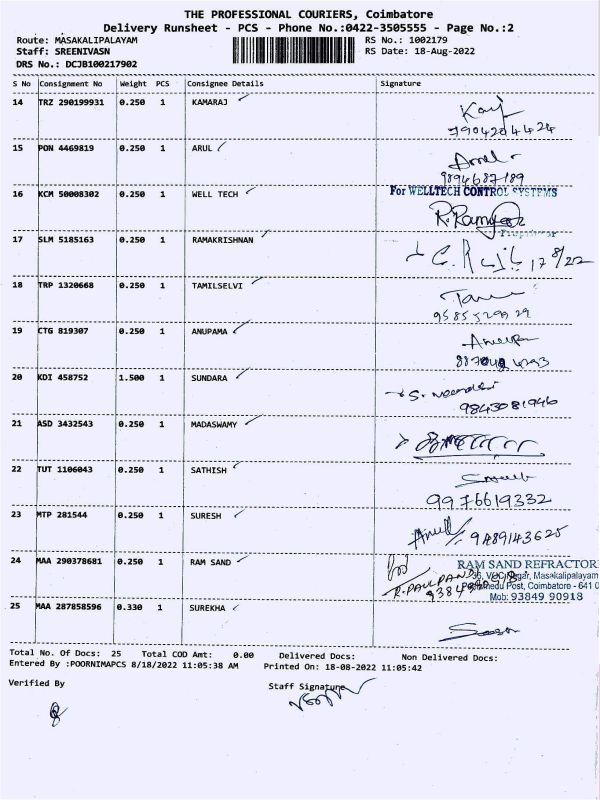 THE PROFESSIONAL COURIERS, Coimbatore
Delivery Runsheet - PCS - Phone No.:0422-3505555 - Page No.:2
Route: MASAKALIPALAYAM RS No.: 1002179
Staff: SREENIVASN RS Date: 18-Aug-2022
DRS No.: DCJB100217902
S No Consignment No Weight PCS Consignee Details Signature
14 TRZ 290199931 0.250 1 KAMARAJ
7904204424
15 PON 4469819 0.250 1 ARUL
9894687189
16 KCM 50008302 0.250 1 WELL TECH For WELLTECH CONTROL SYSTEMS
17 SLM 5185163 0.250 1 RAMAKRISHNAN
18 TRP 1320668 0.250 1 TAMILSELVI
19 CTG 819307 0.250 1 ANUPAMA
20 KDI 458752 1.500 1 SUNDARA
9843081946
21 ASD 3432543 0.250 1 MADASWAMY
22 TUT 1106043 0.250 1 SATHISH
9976619332
23 MTP 281544 0.250 1 SURESH
9489143625
24 MAA 290378681 0.250 1 RAM SAND RAM SAND REFRACTOR
Nagar, Masakalipalayam
Post, Coimbatore - 641 0
Mob: 93849 90918
25 MAA 287858596 0.330 1 SUREKHA
Total No. Of Docs: 25 Total COD Amt: 0.00 Delivered Docs: Non Delivered Docs:
Entered By :POORNIMAPCS 8/18/2022 11:05:38 AM Printed On: 18-08-2022 11:05:42
Verified By Staff Signature